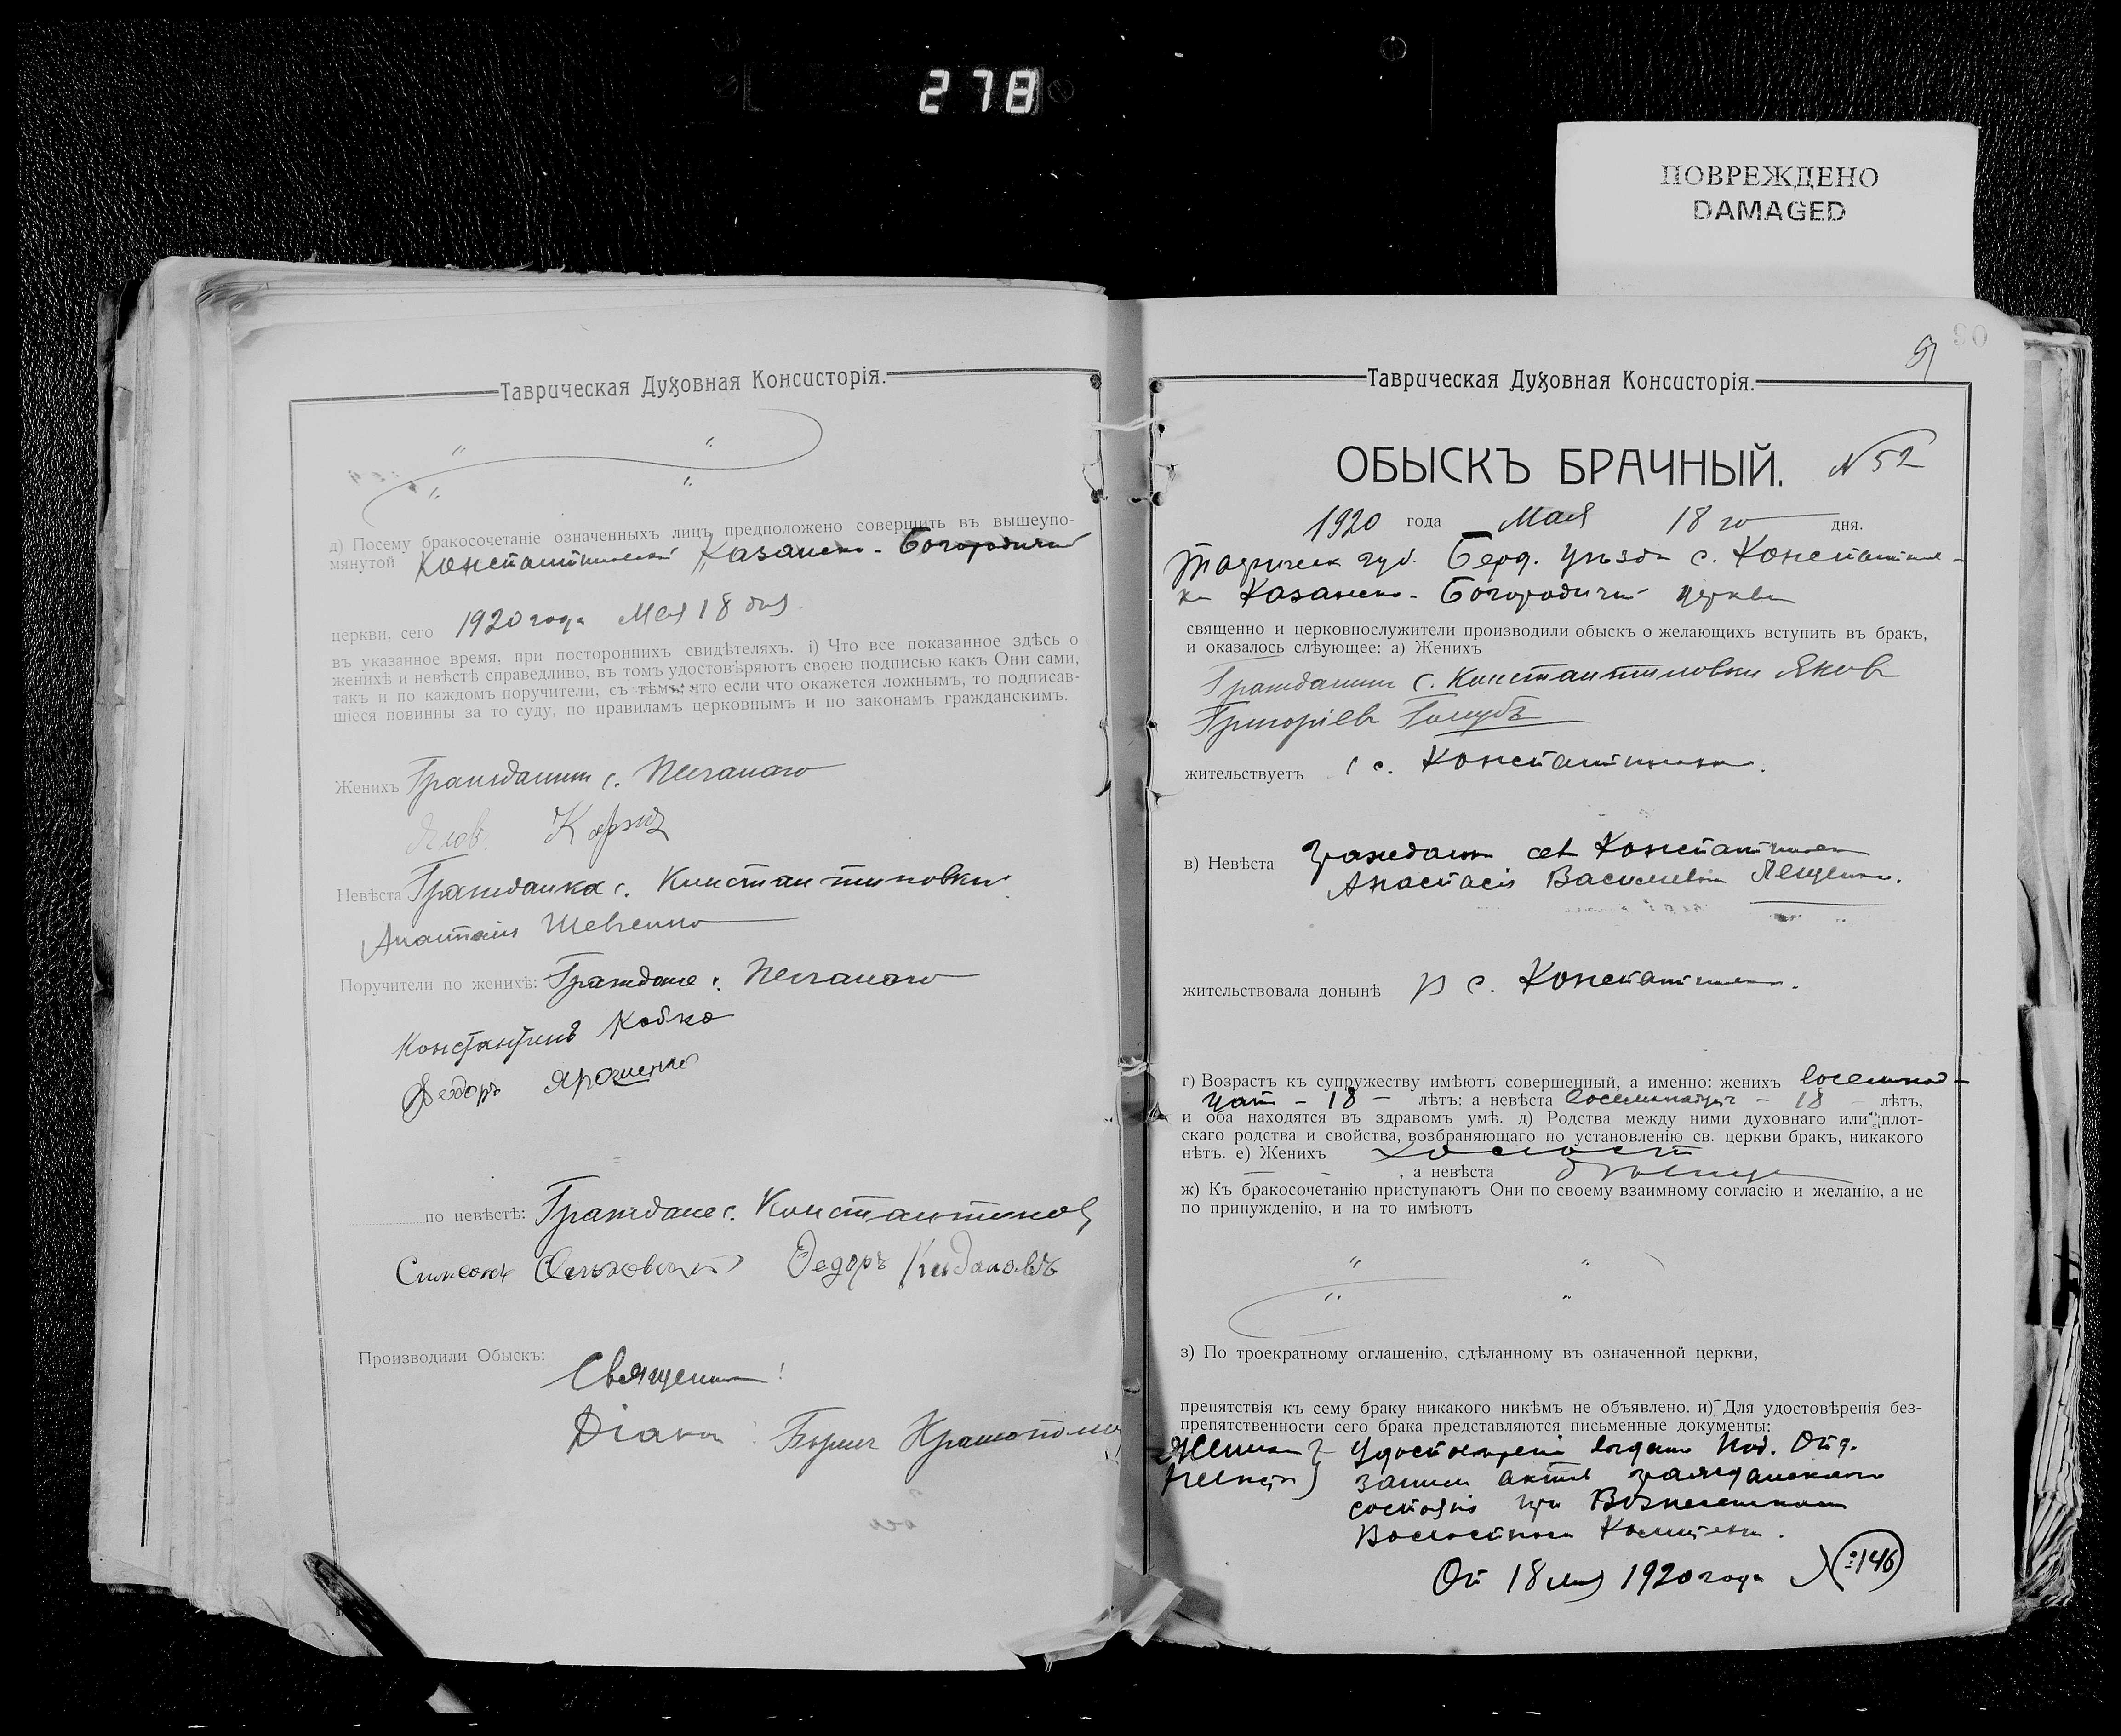 278
ПОВРЕЖДЕНО
DAMAGED
Таврическая Духовная Консисторія.
д) Посему бракосочетаніе означенныхъ лицъ предположено совершить въ вышеупо-
мянутой Казанско-Богородичной
церкви, сего 1920 года Мая 18 дня
въ указанное время, при постороннихъ свидѣтеляхъ. і) Что все показанное здѣсь о
женихѣ и невѣстѣ справедливо, въ томъ удостовѣряютъ своею подписью какъ Они сами,
такъ и по каждомъ поручители, съ тѣмъ, что если что окажется ложнымъ, то подписав-
шіеся повинны за то суду, по правиламъ церковнымъ и по законамъ гражданскимъ.
Женихъ Гражданин с.
Невѣста Гражданка с. Константиновки
Анастасія Шевченко
Поручители по женихѣ: Граждане с.
Константинъ Кобко
Федоръ Ярошенко
по невѣстѣ: Граждане с. Константиновки
Симеонъ Федоръ
Производили Обыскъ:
Священник
Діакон
90
Таврическая Духовная Консисторія.
ОБЫСКЪ БРАЧНЫЙ. N 52
1920 года Мая 18 го дня.
Таврическ губ. Берд. уѣзда с. Константинов-
ки Казанско-Богородичной церкви
священно и церковнослужители производили обыскъ о желающихъ вступить въ бракъ,
и оказалось слѣующее: а) Женихъ
Гражданин с. Константиновки Яков
Григоріев Голубъ
жительствуетъ с. Константиновки.
в) Невѣста Гражданка сел Константиновки
Анастасія Васильевна Лещенко.
жительствовала донынѣ в с. Константиновки.
г) Возрастъ къ супружеству имѣютъ совершенный, а именно: женихъ восемнад-
цат - 18 - лѣтъ: а невѣста восемнадцат - 18 - лѣтъ,
и оба находятся въ здравомъ умѣ. д) Родства между ними духовнаго или плот-
скаго родства и свойства, возбраняющаго по установленію св. церкви бракъ, никакого
нѣтъ. е) Женихъ холост
, а невѣста девица
ж) Къ бракосочетанію приступаютъ Они по своему взаимному согласію и желанію, а не
по принужденію, и на то имѣютъ
з) По троекратному оглашенію, сдѣланному въ означенной церкви,
препятствія къ сему браку никакого никѣмъ не объявлено. и) Для удостовѣренія без-
препятственности сего брака представляются письменные документы:
Жениха Удостоверение выдано Под. Отд.
Невесты записи актов гражданского
состояния при Вознесенском
Волостном Комитете.
От 18 мая 1920 года N 146